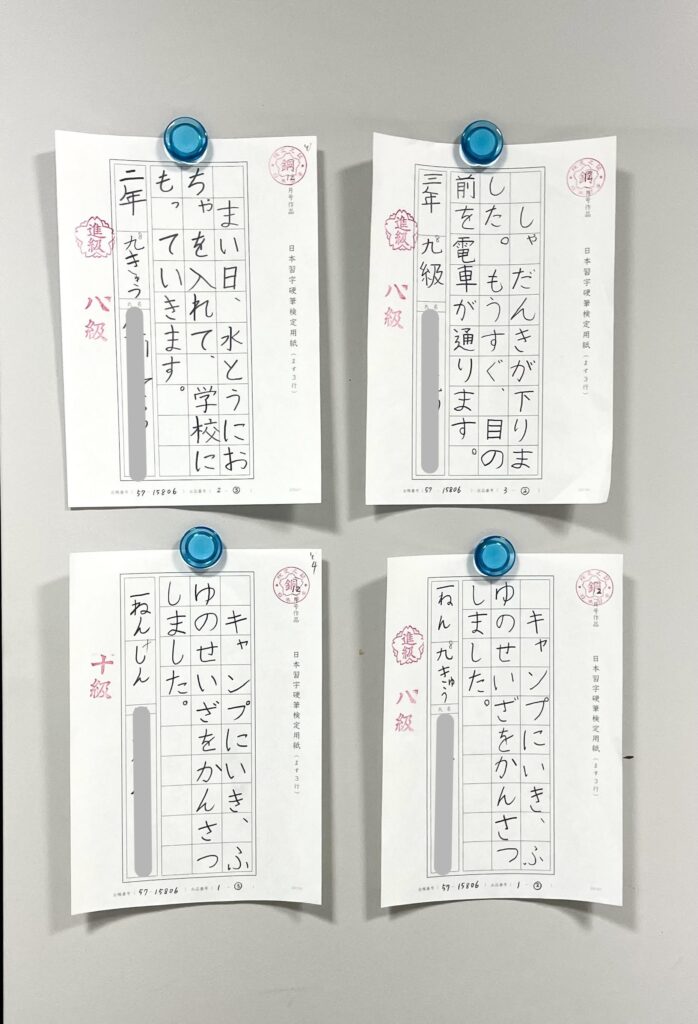 銅
12
月号作品
日本習字硬筆検定用紙(ます3行)
まい日、水とうにお
ちゃを入れて、学校に
もっていきます。
二年
九きゅう
氏名
進級
八級
会場番号
57-15806
出品番号
2-③
銅
12
月号作品
日本習字硬筆検定用紙(ます3行)
しゃだんきが下りま
した。もうすぐ、目の
前を電車が通ります。
三年
九級
氏名
進級
八級
57-15806
出品番号
3-②
銅
12
月号作品
日本習字硬筆検定用紙(ます3行)
キャンプにいき、ふ
ゆのせいざをかんさつ
しました。
一ねん
しん
十級
57-15806
出品番号
1-③
銅
12
月号作品
日本習字硬筆検定用紙(ます3行)
キャンプにいき、ふ
ゆのせいざをかんさつ
しました。
一ねん
九きゅう
氏名
進級
八級
57-15806
出品番号
1-③